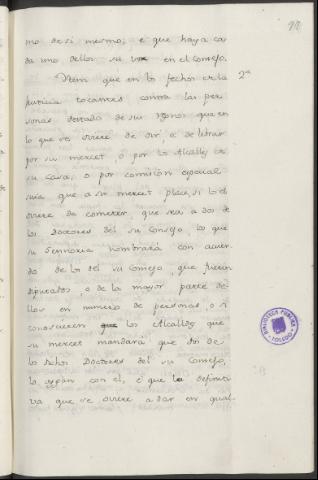 mo de si mesmo, é que haya ca
da uno dellos su voz en el Consejo.
Item que en los fechos de la 2ª
justicia tocantes contra las per
sonas de estado de sus Regnos que en
lo que se oviere de oir, o de librar
por su merced, o por los Alcaldes de
su casa, o por comision especial
suia que a su merced place, si lo él
oviere de cometer, que sea a dos de
los Doctores del su Consejo, los que
su Sennoria nombrará con acuer
do de los del su Consejo, que fueren
diputados, o de la mayor parte de
llos en numero de personas o si
conoscieren que los Alcaldes que
su merced mandará que dos de
los dichos Doctores del su Consejo,
lo oyan con él, é que la definiti
va que se oviere a dar en qual
BIBLIOTECA PUBLICA
TOLEDO